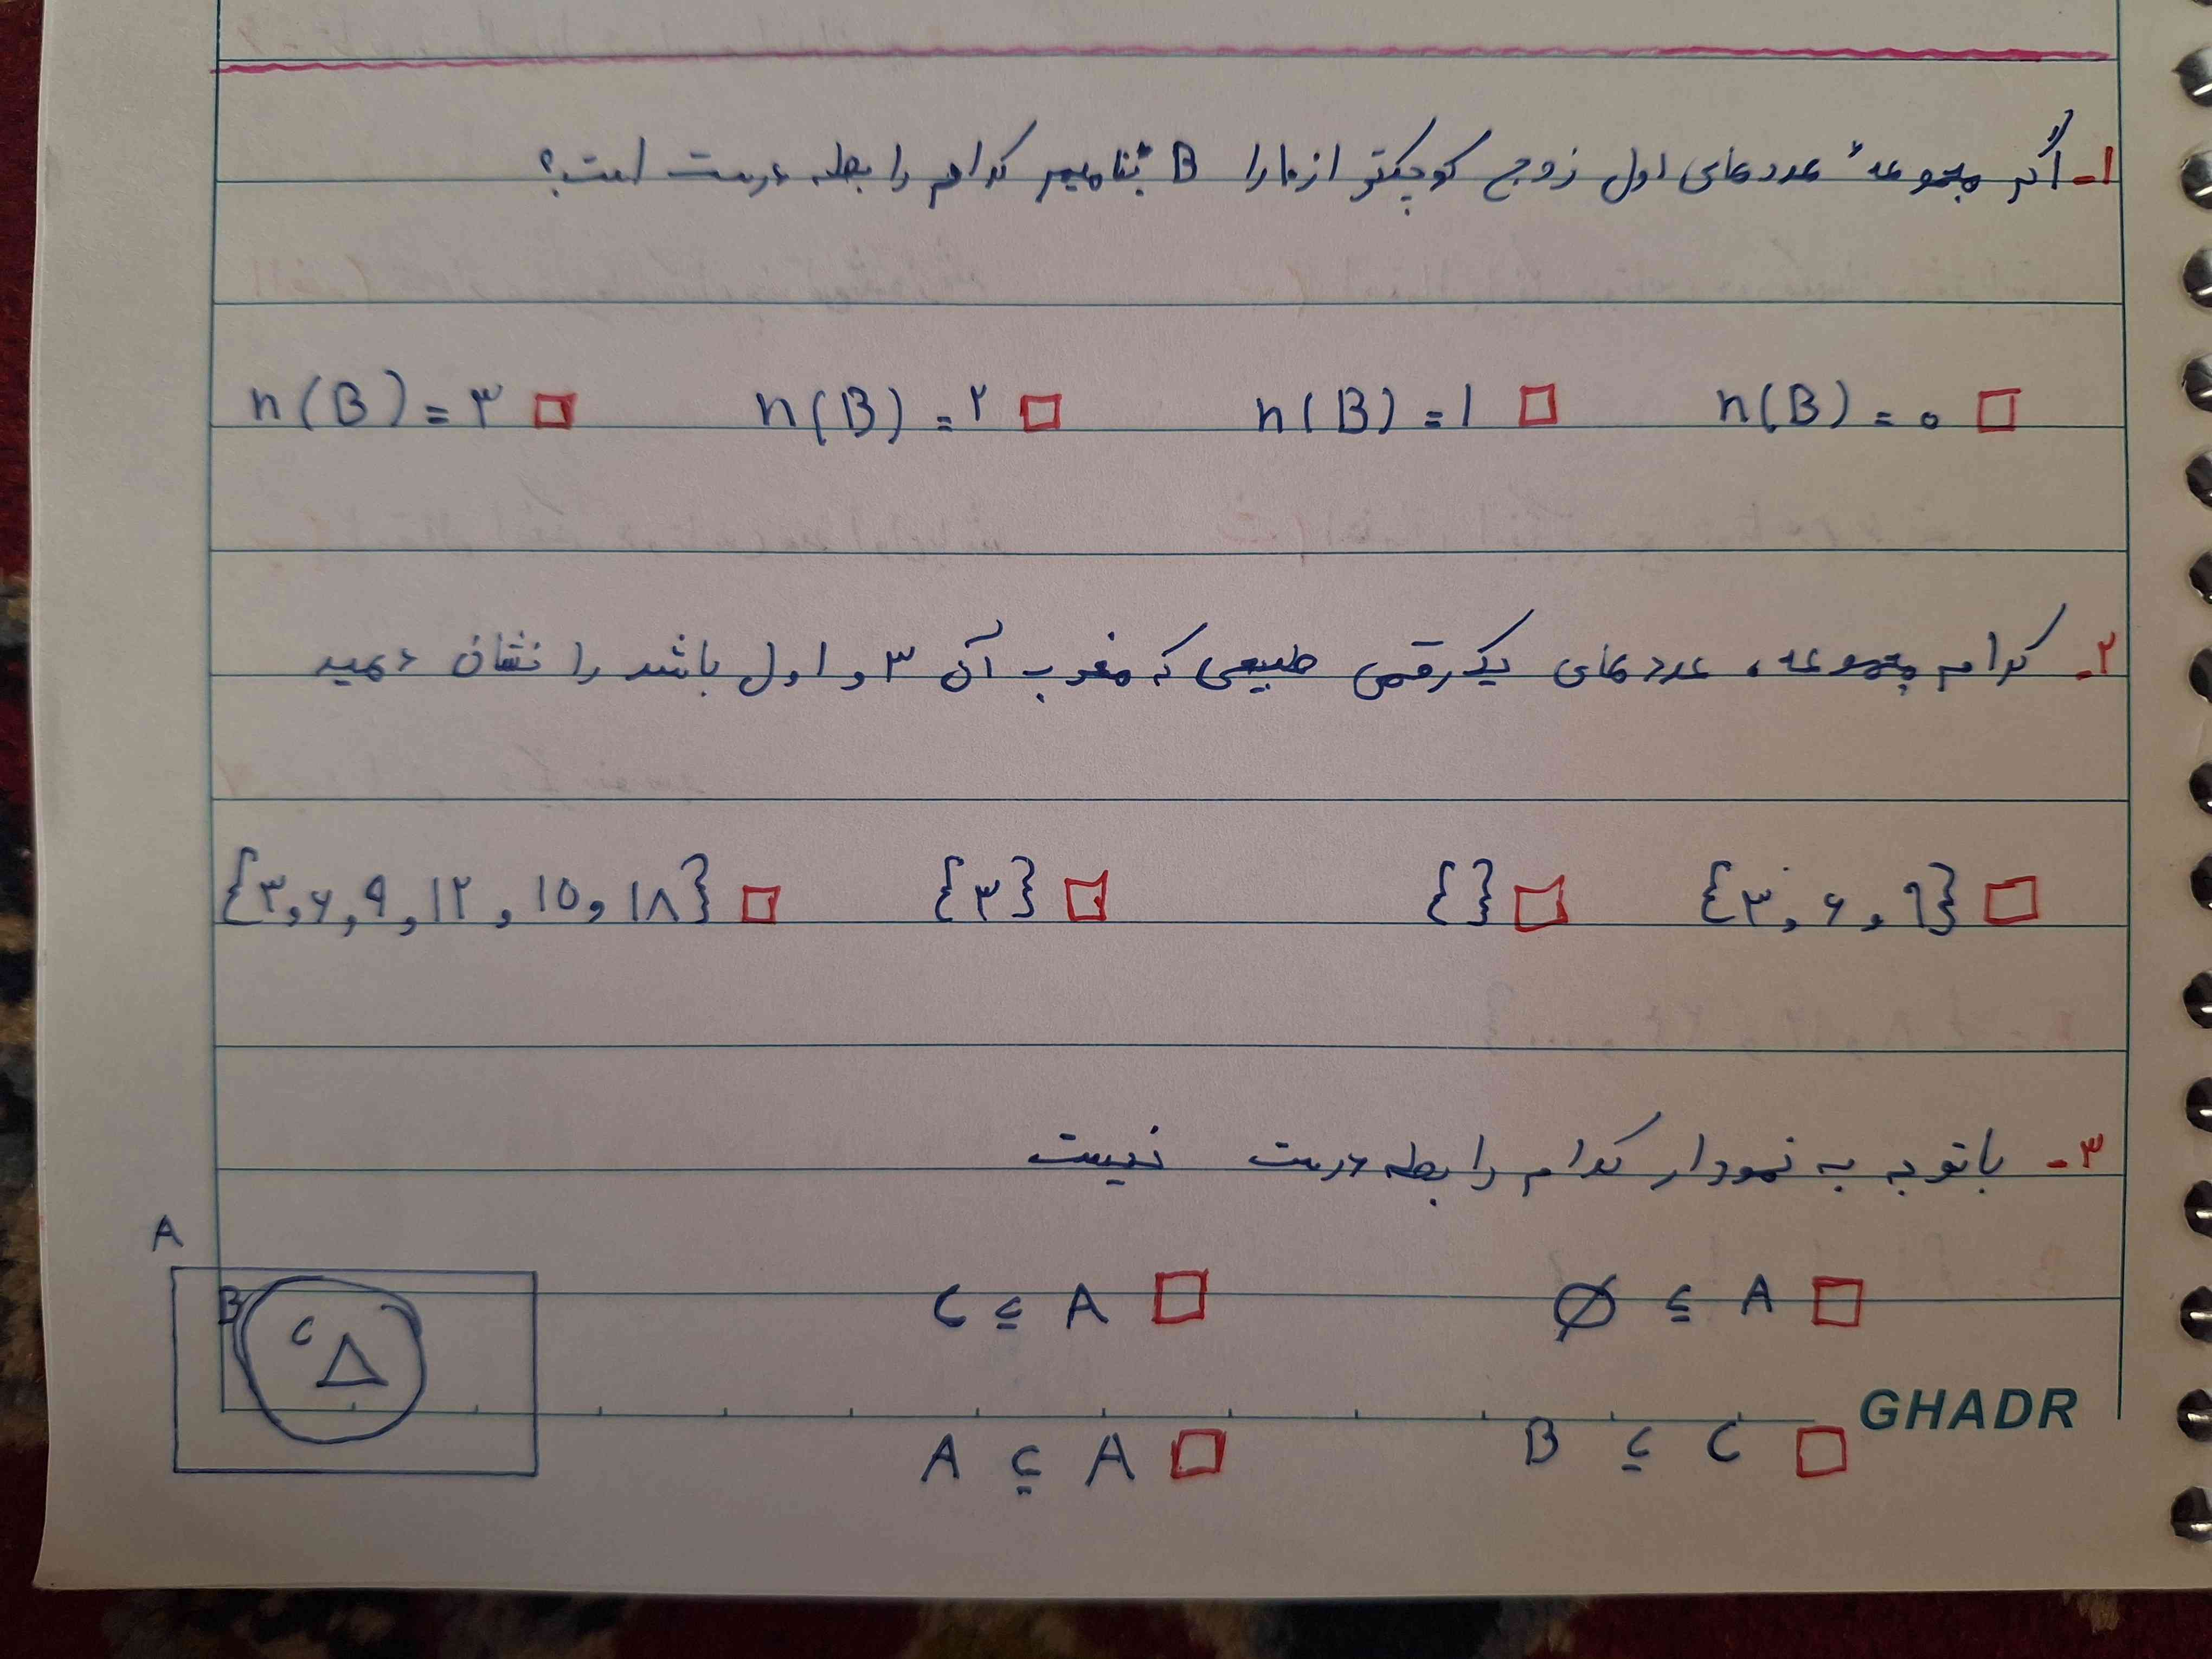 ۱- اگر مجموعهٔ عددهای اول زوج کوچکتر از ۱۰ را B بنامیم کدام رابطه درست است؟
n(B) = ۰ □ n(B) = ۱ □ n(B) = ۲ □ n(B) = ۳ □
۲- کدام مجموعه، عددهای یک رقمی طبیعی که مضرب آن ۳ و اول باشد را نشان دهید
{۳, ۶, ۹} □ {} □ {۳} □ {۳, ۶, ۹, ۱۲, ۱۵, ۱۸} □
۳- باتوجه به نمودار کدام رابطه درست نیست
A
∅ ⊆ A □ C ⊆ A □
B C
B ⊆ C □ A ⊆ A □
GHADR